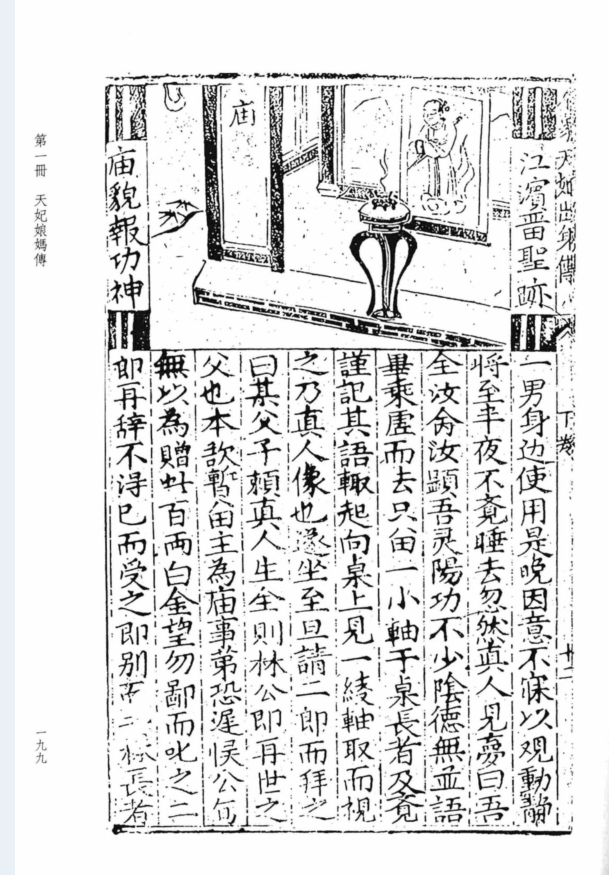 天妃出身傳
下卷
江濱畱聖跡
庙
庙貌報功神
一男身边使用是晚因意不寐以观動靜
将至半夜不竟睡去忽然真人見夢曰吾
全汝命汝顕吾灵陽功不少陰德無並語
畢乘虚而去只畄一小軸于桌長者及竟
謹記其語輙起向桌上見一綾軸取而視
之乃真人像也遂坐至旦請二郎而拜之
曰某父子頼真人生全則林公即再世之
父也本欲暫畄主為庙事第恐遲悮公旬
無以為贈此百両白金望勿鄙而叱之二
郎再辞不淂已而受之即别 林長者
第一冊 天妃娘媽傳
一九九